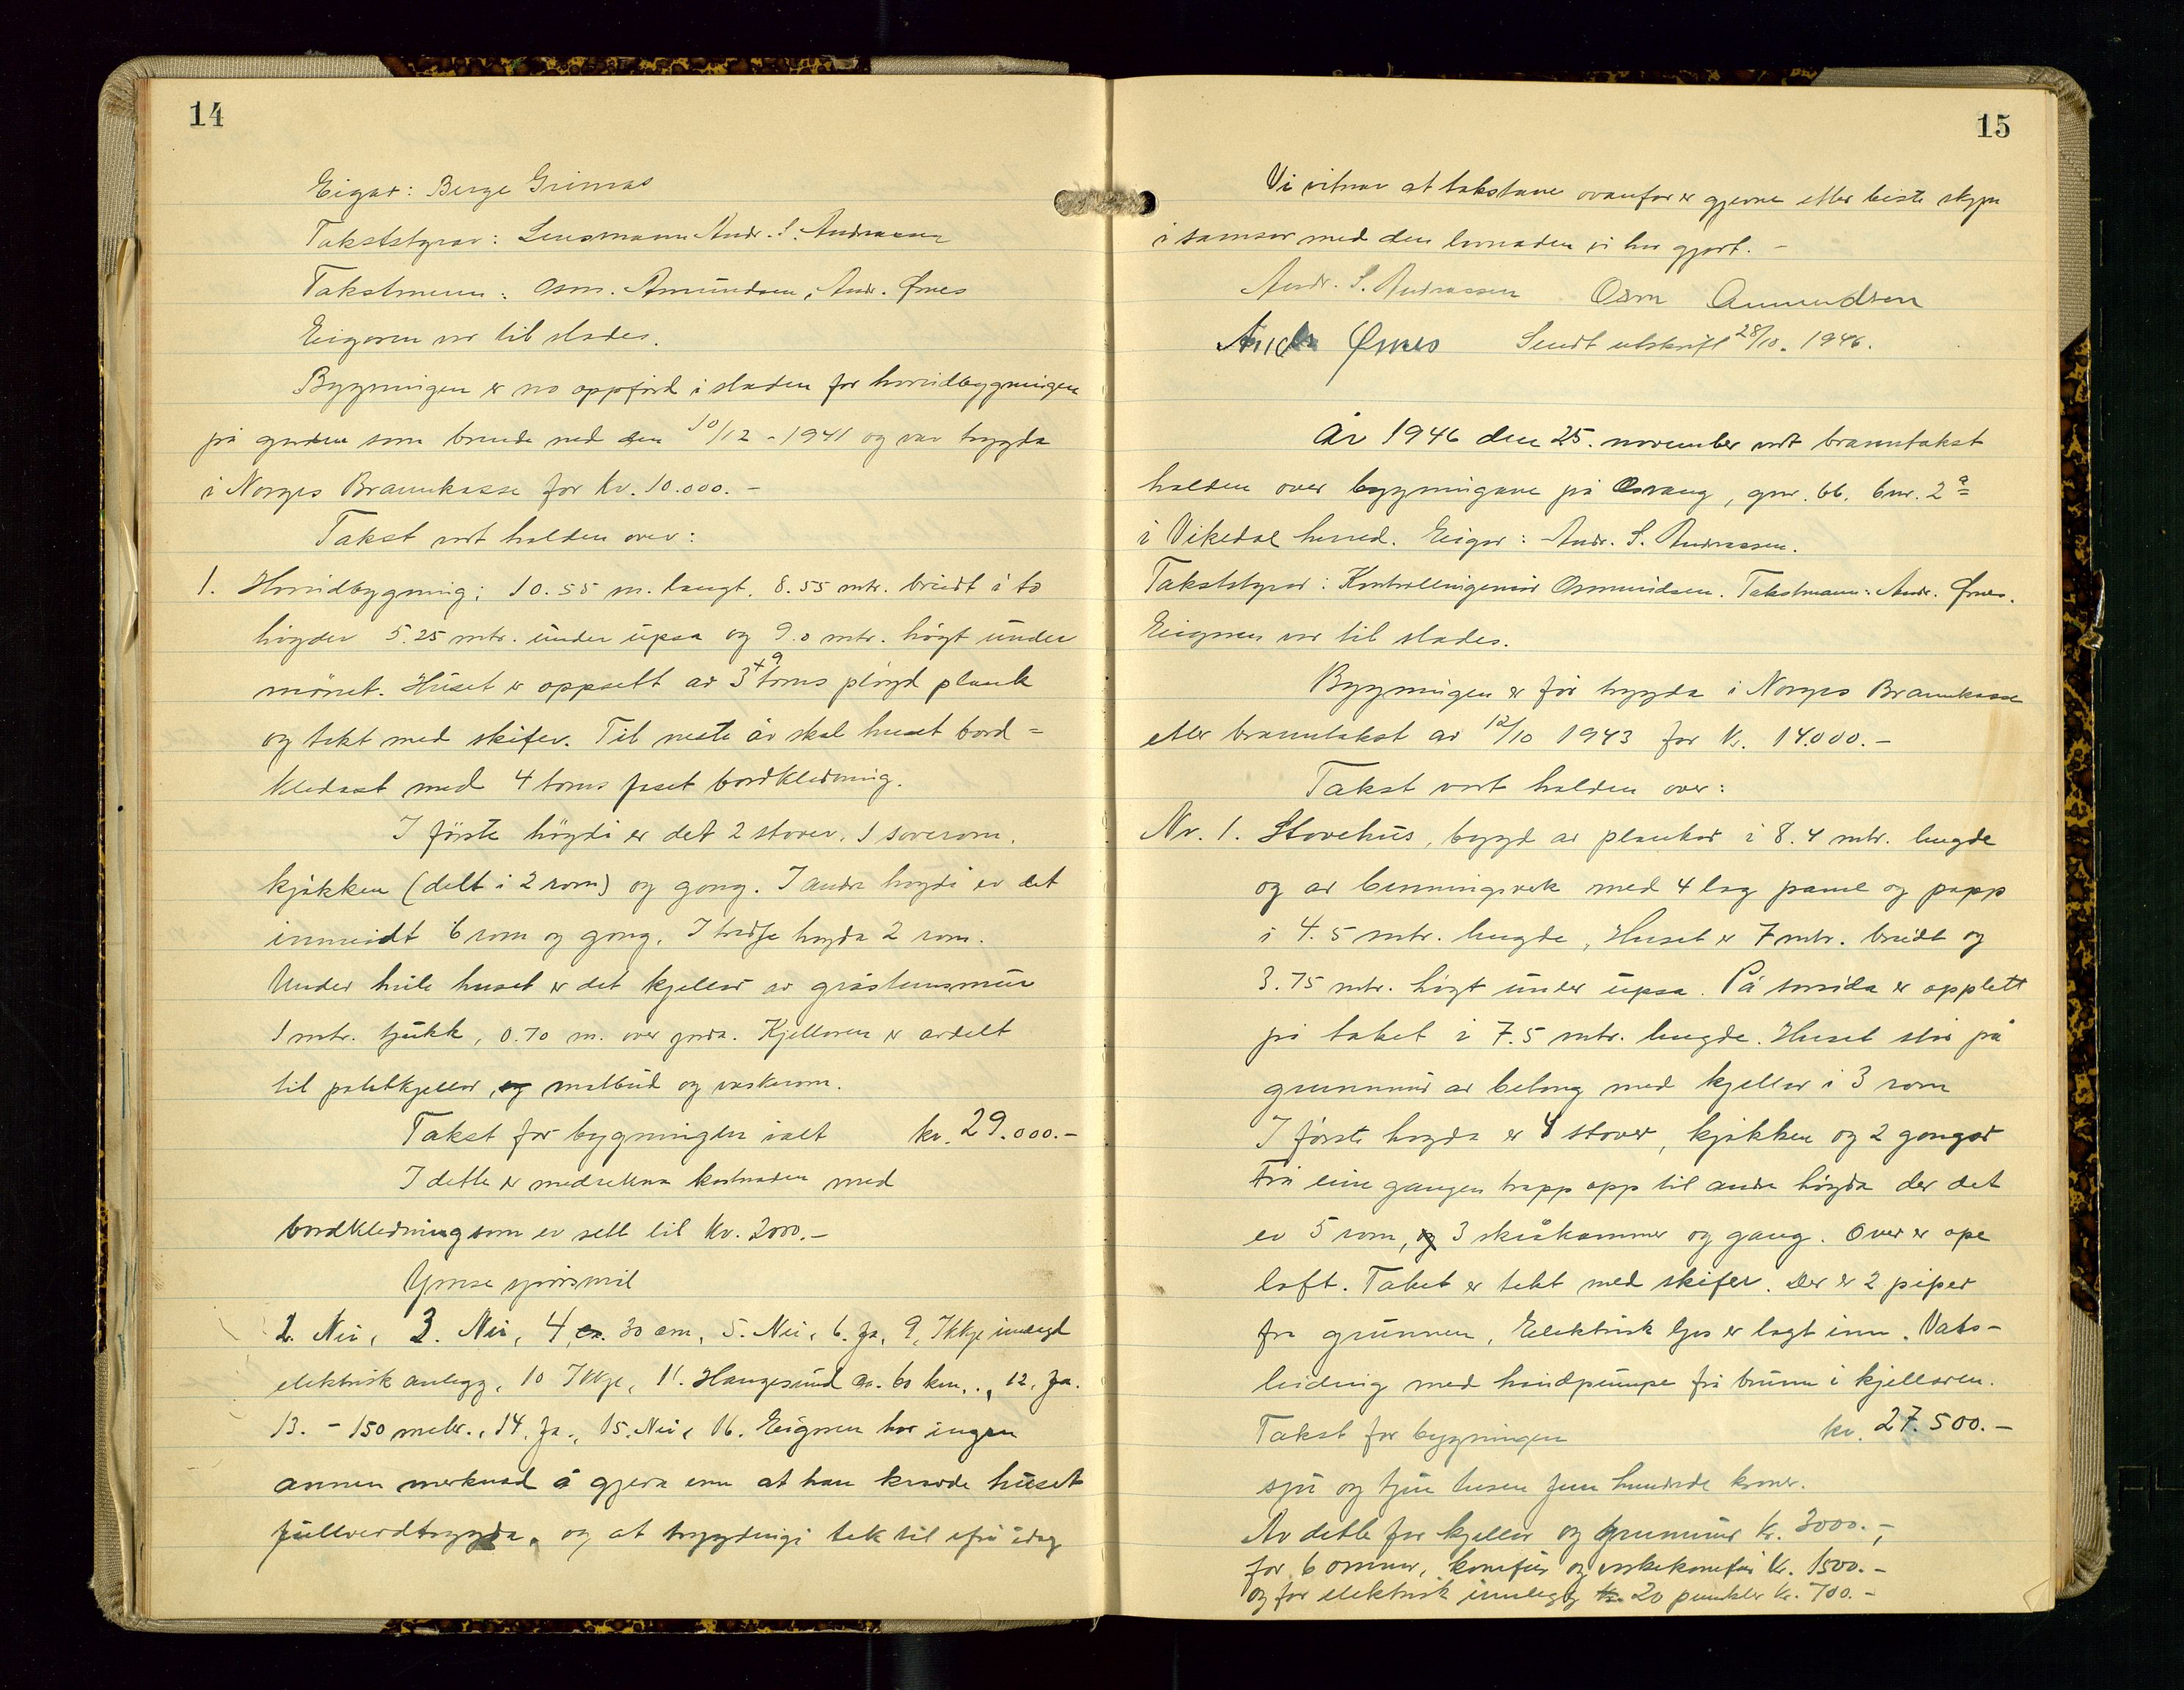 14
Eigar: Berge Grimás
Takststyrar: Lensmann Andr. S. Andreassen
Takstmenn: Osm. Amundsen, Andr. Ørnes
Eigaren var til stades.
Bygningen er no oppførd i staden for hovudbygningen
på garden som brende ned den 10/12 - 1941 og var trygda
i Norges Brannkasse for kr. 10.000.-
Takst vart halden over:
1. Hovudbygning: 10.55 m. langt, 8.55 mtr. breidt i to
høgder 5.25 mtr. under upsa og 9.0 mtr. høgt under
mønet. Huset er oppsett av 3 x 9 toms pløgd plank
og tekt med skifer. Til neste år skal huset bord=
kledast med 4 toms faset bordkledning.
I første høgdi er det 2 stover, 1 soverom,
kjøkken (delt i 2 rom) og gong. I andre høgdi er det
innreidt 6 rom og gong. I tredje høgda 2 rom.
Under heile huset er det kjellar av gråsteinsmur
1 mtr. tjukk, 0.70 m. over jorda. Kjellaren er avdelt
til potetkjellar, og matbud og vaskerom.
Takst for bygningen ialt kr. 29.000.-
I dette er medrekna kostnaden med
bordkledning som er sett til kr. 2000.-
Ymse spørsmål
2. Nei, 3. Nei, 4, ca. 30 cm, 5. Nei, 6. Ja, 9, Ikkje innlagt
elektrisk anlegg, 10 Ikkje, 11. Haugesund ca. 60 km., 12. Ja.
13. - 150 meter., 14. Ja., 15. Nei, 16. Eigaren har ingen
annen merknad å gjera enn at han kravde huset
fullverdtrygda, og at trygdingi tek til ifrå idag
15
Vi vitnar at takstane ovanfor er gjevne etter beste skjøn
i samsvar med den lovnaden vi har gjort. -
Andr. S. Andreassen Osm Amundsen
Andr Ørnes Sendt utskrift 28/10. 1946.
År 1946 den 25. november vart branntakst
halden over bygningane på Osvang, gnr. 66. bnr. 2 a
i Vikedal herred. Eigar: Andr. S. Andreassen.
Takststyrar: Kontrollingeniør Osmundsen. Takstmann: Andr. Ørnes.
Eigaren var til stades.
Bygningen er før trygda i Norges Brannkasse
etter branntakst av 12/10 1943 for kr. 14.000.-
Takst vart halden over:
Nr. 1. Stovehus, bygd av plankar i 8.4 mtr. lengde
og av binningsverk med 4 lag panel og papp
i 4.5 mtr. lengde, Huset er 7 mtr. breidt og
3.75 mtr. høgt under upsa. På sorsida er opplett
på taket i 7.5 mtr. lengde. Huset står på
grunnmur av betong med kjellar i 3 rom
I første høgda er 4 stover, kjøkken og 2 gongar
Frå eine gangen trapp opp til andre høgda der det
er 5 rom, og 3 skråkammer og gang. Over er ope
loft. Taket er tekt med skifer. Der er 2 piper
fra grunnen. Elektrisk ljos er lagt inn. Vats-
leidning med handpumpe frå brunn i kjellaren.
Takst for bygningen kr. 27.500.-
sju og tjue tusen fem hundrede kroner.
Av dette for kjellar og grunnmur kr. 3000.-,
for 6 omnar, komfyr og vaskekomfyr kr. 1500.-
og for elektrisk innlegg kr. 20 punkter kr. 700.-